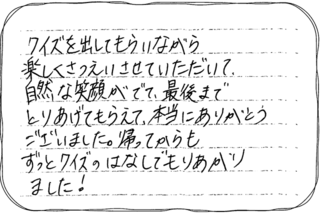 クイズを出してもらいながら
楽しくさつえいさせていただいて、
自然な笑顔がでて、最後まで
とりあげてもらえて、本当にありがとう
ございました。帰ってからも
ずっとクイズのはなしでもりあがり
ました!